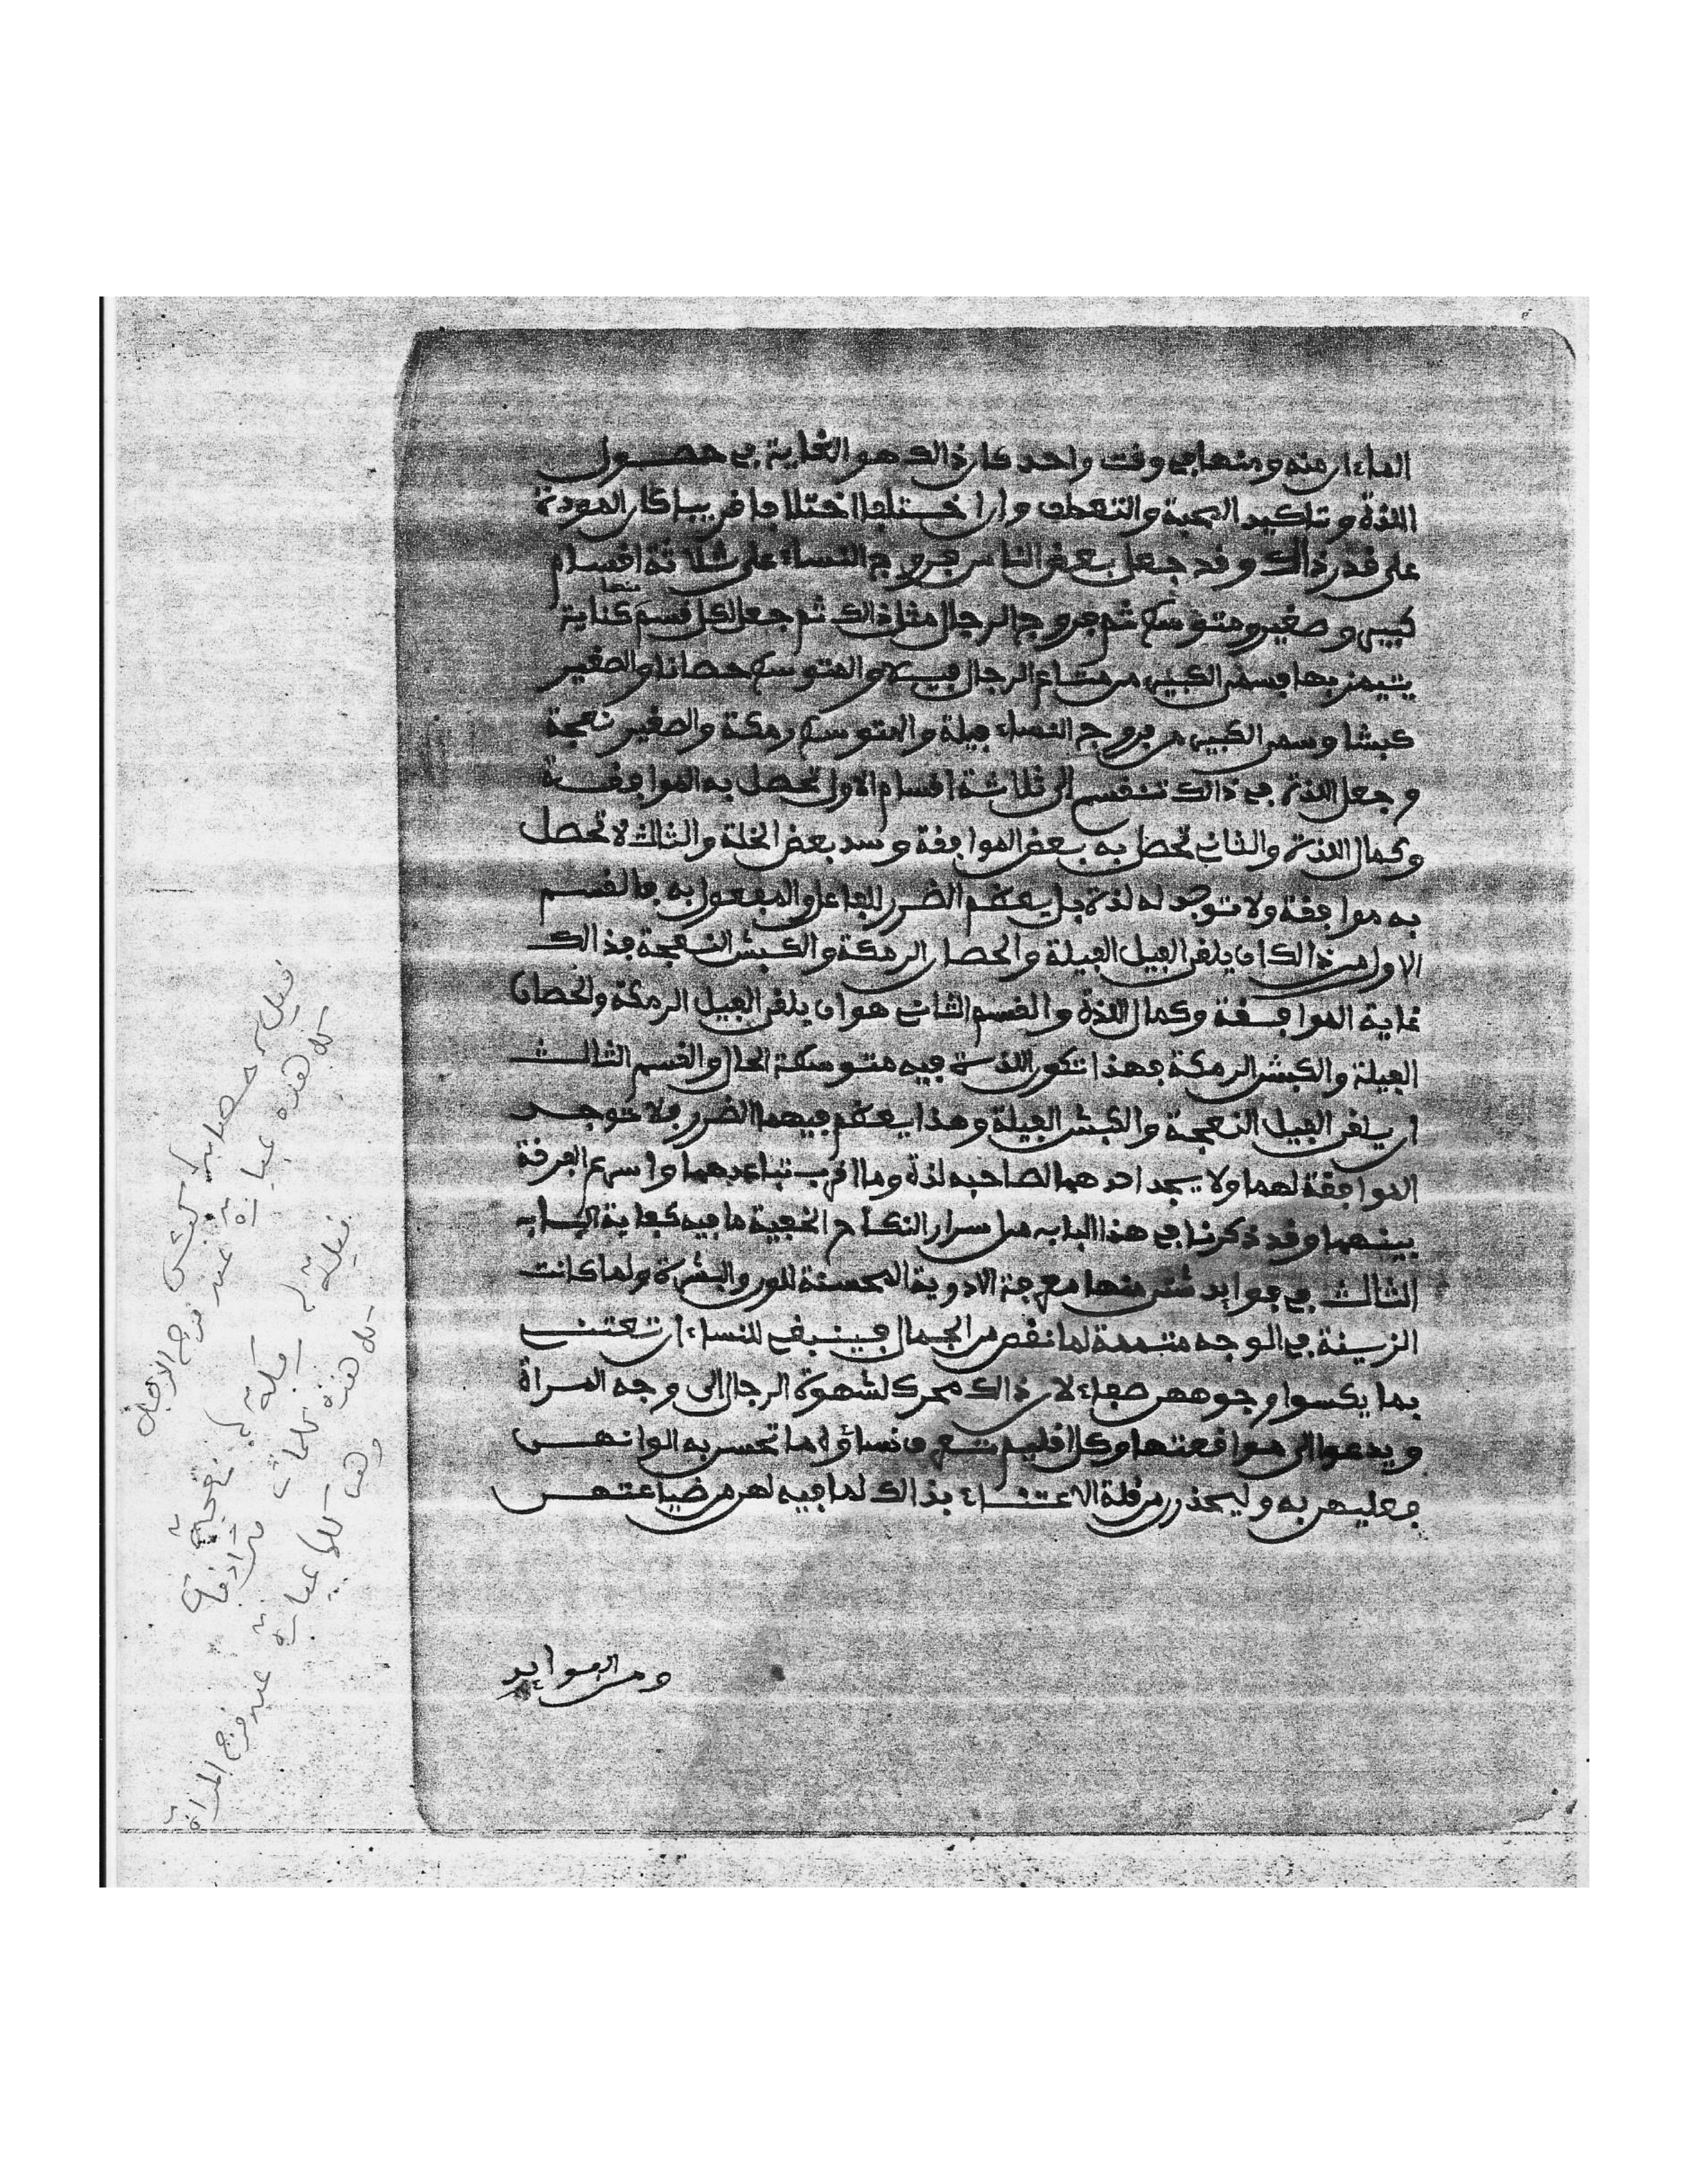 الماءان منه ومنها في وقت واحد كان ذالك هو الغاية في حصول
اللذة وتاكيد المحبة والتعطف وان اختلفا اختلافا قريبا كان المودة
على قدر ذالك وقد جعل بعض الناس فروج النساء على ثلاثة اقسام
كبير وصغير ومتوسط ثم فروج الرجال مثل ذالك ثم جعل لكل قسم منها كناية
يتميز بها فسمى الكبير من متاع الرجال فيلا والمتوسط حصانا والصغير
كبشا وسمى الكبير من فروج النساء فيلة والمتوسط رمكة والصغير نعجة
وجعل اللذة في ذالك تنقسم الى ثلاثة اقسام الاول تحصل به الموافقة
وكمال اللذة والثاني تحصل به بعض الموافقة وسد بعض الخلة والثالث لا تحصل
به موافقة ولا توجد له لذة بل يعظم الضرر للفاعل والمفعول به فالقسم
الاول من ذالك ان يلقى الفيل الفيلة والحصان الرمكة والكبش النعجة فذالك
غاية الموافقة وكمال اللذة والقسم الثاني هو ان يلقى الفيل الرمكة والحصان
الفيلة والكبش الرمكة فهذا تكون اللذة فيه متوسطة الحال والقسم الثالث
ان يلقى الفيل النعجة والكبش الفيلة وهذا يعظم فيهما الضرر فلا توجد
الموافقة لهما ولا يجد احدهما لصاحبه لذة وما اقرب تباعدهما واسرع الفرقة
بينهما وقد ذكرنا في هذا الباب من اسرار النكاح الخفية ما فيه كفاية الباب
الثالث في فوايد شتى منها معرفة الادوية المحسنة للون والبشرة ولما كانت
الزينة في الوجه متممة لما نقص من الجمال فينبغي للنساء ان تعتني
بما يكسوا وجوههن صفاء لان ذالك محرك لشهوة الرجال الى وجه المراة
ويدعوا الى مواقعتها وكل اقليم تعرف نساؤه ما تحسن به الوانهن
فعليهن به وليحذرن من قلة الاعتناء بذالك لما فيه لهن من ضياعتهن
ومن الفوايد
فيل حصان كبش
كل هذه عبارة عند فرج الرجل
فيلة رمكة نعجة
كل هذه كلمات مترادفة
وهي كلها عبارة عند فرج المراة